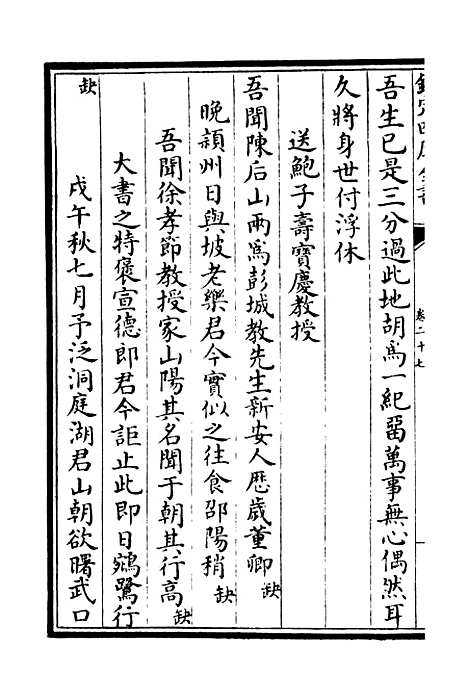 欽定四庫全書
卷二十七
吾生已是三分過此地胡爲一紀畱萬事無心偶然耳
久將身世付浮休
送鮑子壽寶慶教授
吾聞陳后山兩爲彭城教先生新安人歴歳董卿缺
晩潁州日與坡老樂君今實似之往食邵陽稍缺
吾聞徐孝節教授家山陽其名聞于朝其行高缺
大書之特褒宣德郎君今詎止此即日鵷鷺行
缺
戊午秋七月予泛洞庭湖君山朝欲曙武口